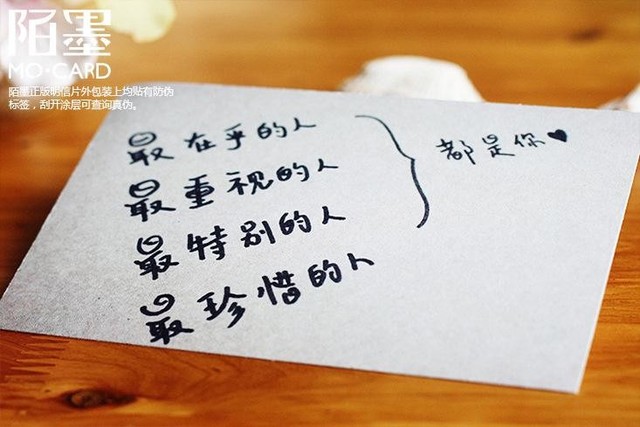 陌墨
MO·CARD
陌墨正版明信片外包装上均贴有防伪
标签，刮开涂层可查询真伪。
最在乎的人
最重视的人
最特别的人
最珍惜的人
都是你♥